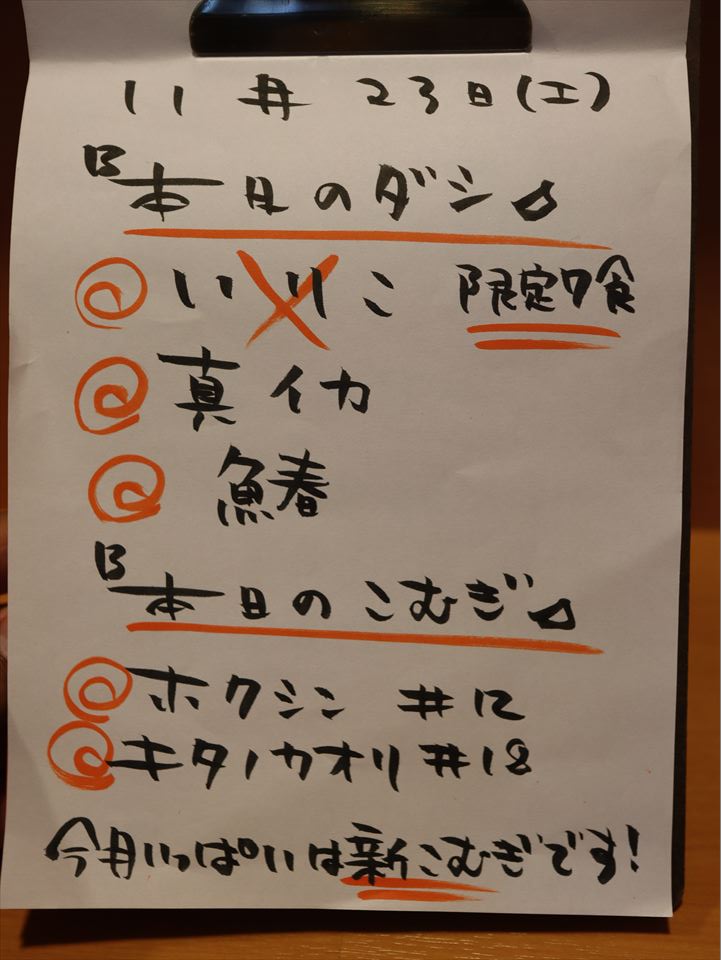 11月23日(土)
『本日のダシ』
いりこ 限定7食
真イカ
鰆
『本日のこむぎ』
ホクシン #12
キタノカオリ #18
今月いっぱいは新こむぎです!